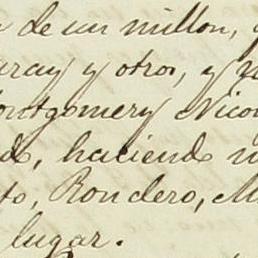 de un millon,
y otros, y
Montgomery Nico
do, haciendo
to, Rondero, M
lugar.